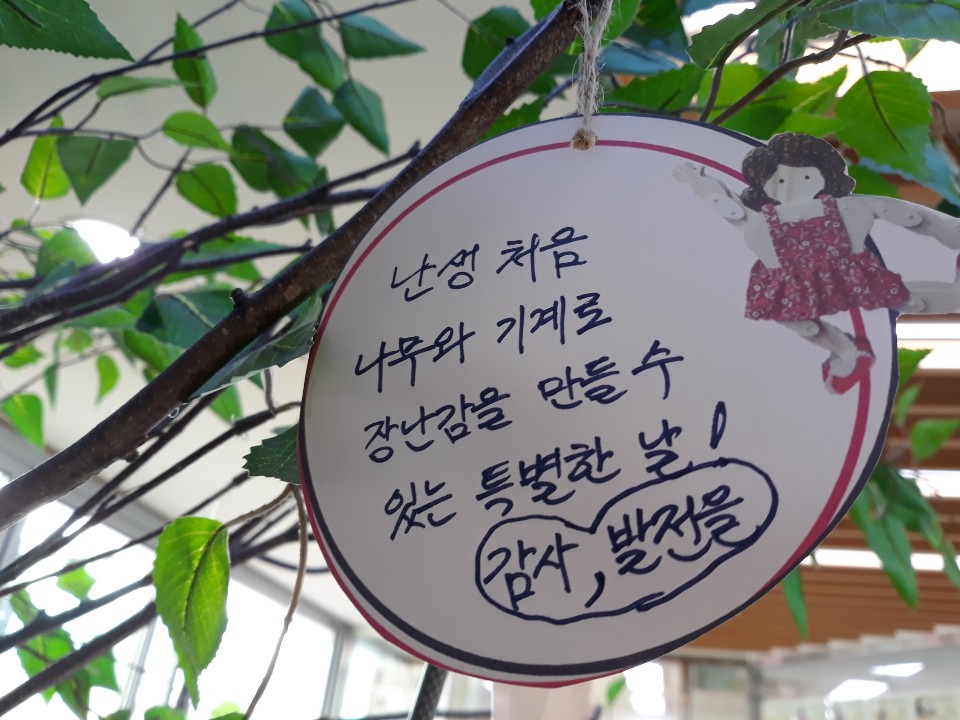 난생 처음
나무와 기계로
장난감을 만들 수
있는 특별한 날!
감사, 발전을